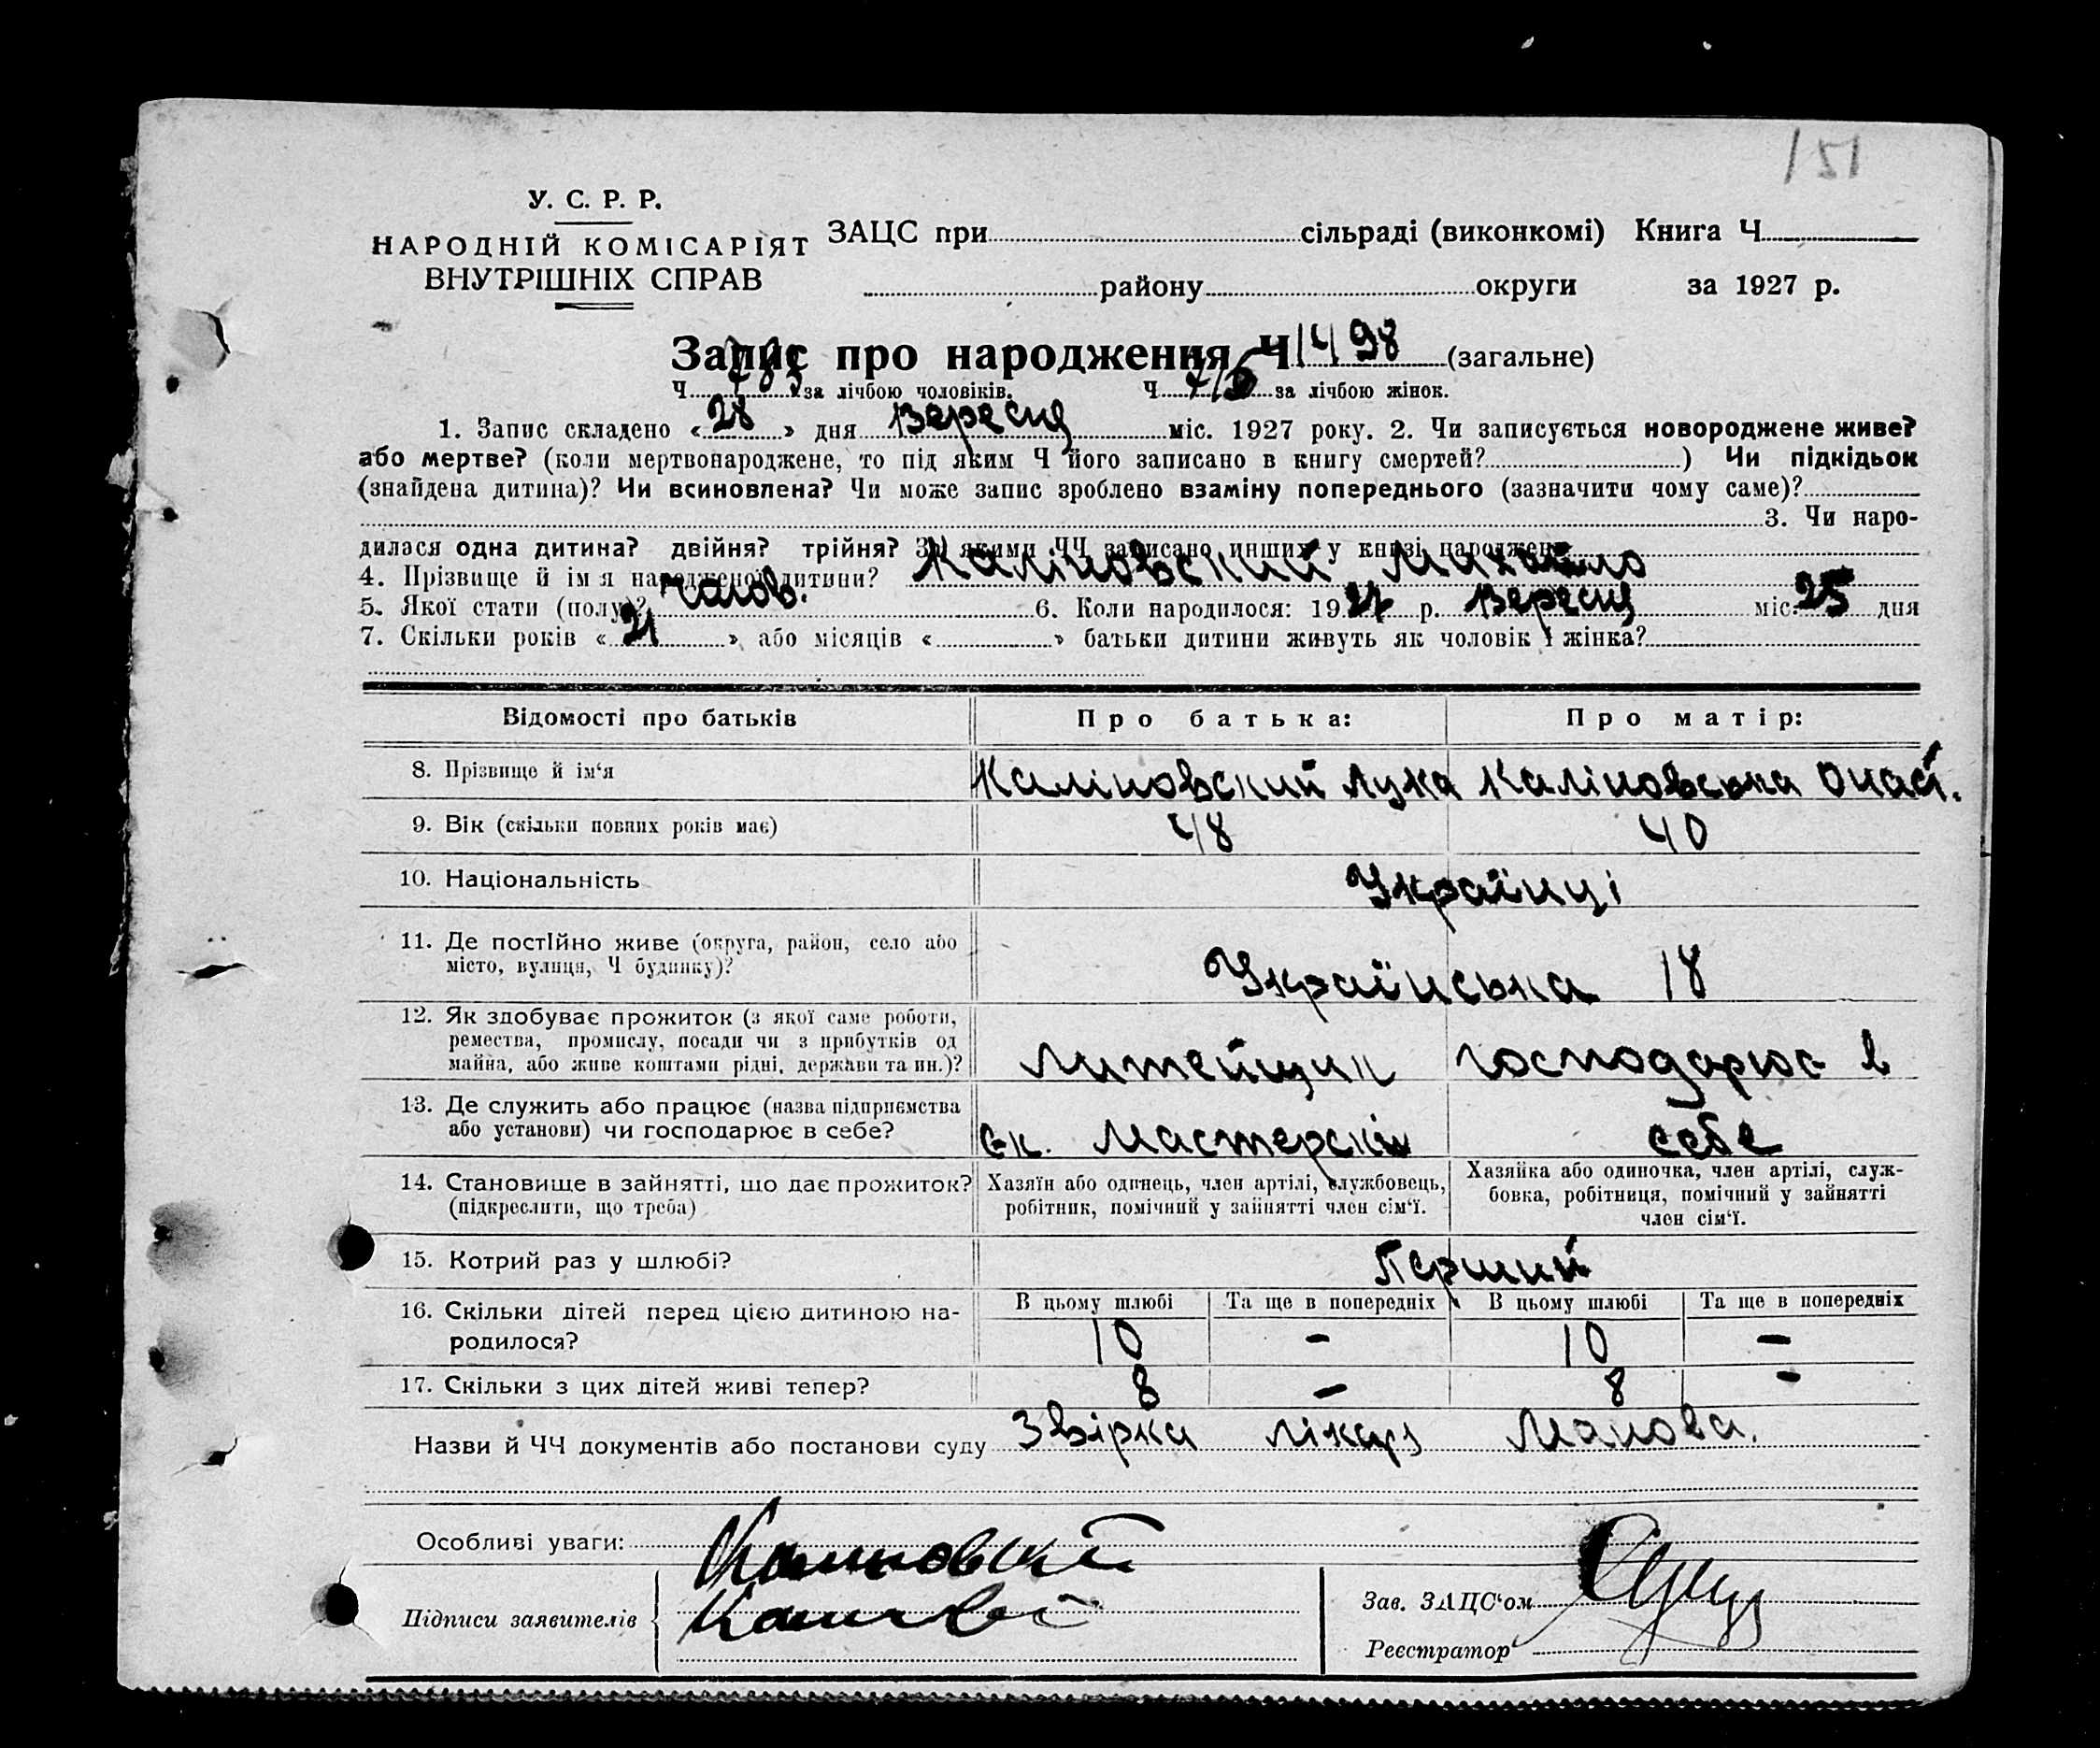 151
У. С. Р. Р.
НАРОДНІЙ КОМІСАРІЯТ
ВНУТРІШНІХ СПРАВ
ЗАЦС при сільраді (виконкомі) Книга Ч
району округи за 1927 р.
Запис про народження Ч 1498 (загальне)
Ч за лічбою чоловіків. Ч 715 за лічбою жінок.
1. Запис складено « 28 » дня Вересня міс. 1927 року. 2. Чи записується новороджене живе?
або мертве? (коли мертвонароджене, то під яким Ч його записано в книгу смертей? ) Чи підкідьок
(знайдена дитина)? Чи всиновлена? Чи може запис зроблено взаміну попереднього (зазначити чому саме)?
3. Чи наро-
дилася одна дитина? двійня? трійня? За якими ЧЧ записано инших у книзі народжень
4. Прізвище й ім'я народженої дитини? Каліновський Михайло
5. Якої стати (полу)? чолов. 6. Коли народилося: 1927 р. Вересня міс. 25 дня
7. Скільки років « 21 » або місяців « » батьки дитини живуть як чоловік і жінка?
Відомості про батьків Про батька: Про матір:
8. Прізвище й ім'я Каліновский Лука Каліновська Онаст.
9. Вік (скільки повних років має) 48 40
10. Національність Українці
11. Де постійно живе (округа, район, село або
місто, вулиця, Ч будинку)? Українська 18
12. Як здобуває прожиток (з якої саме роботи,
ремества, промислу, посади чи з прибутків од
майна, або живе коштами рідні, держави та ин.)? Литейщик господарює в
13. Де служить або працює (назва підприємства
або установи) чи господарює в себе? Мастерскі себе
14. Становище в зайнятті, що дає прожиток?
(підкреслити, що треба)
Хазяїн або одинець, член артілі, службовець,
робітник, помічний у зайнятті член сім'ї.
Хазяйка або одиночка, член артілі, служ-
бовка, робітниця, помічний у зайнятті
член сім'ї.
15. Котрий раз у шлюбі? Перший
В цьому шлюбі Та ще в попередніх В цьому шлюбі Та ще в попередніх
16. Скільки дітей перед цією дитиною на-
родилося? 10 - 10 -
17. Скільки з цих дітей живі тепер? 8 - 8 -
Назви й ЧЧ документів або постанови суду Звірка лікаря
Особливі уваги:
Підписи заявителів
Калиновский
Зав. ЗАЦС'ом
Реєстратор